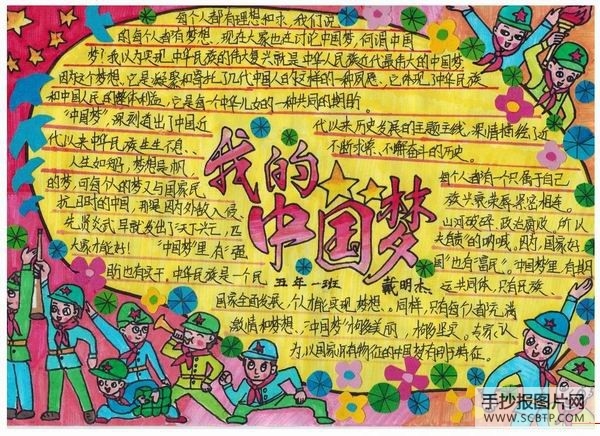 每个人都有理想和追求,我们说
的每个人都有梦想。现在大家也在讨论中国梦,何谓中国
梦?我以为实现中华民族的伟大复兴就是中华人民族近代最伟大的中国梦
因为这个梦想,它是凝聚和寄托了几代中国人的这样的一种夙愿。它体现中华民族
和中国人民的整体利益,它是每个中华儿女的一种共同的期盼。
"中国梦"深刻道出了中国近
代以来历史发展的主题主线,深情描绘了近
代以来中华民族生生不息、
不断求索、不懈奋斗的历史。
人生如船,梦想是帆
每个人都有一个只属于自己
的梦,可每个人的梦又与国家民
族兴衰荣辱紧密相连。
抗日时的中国,那是因为外敌入侵、
山河破碎、政治腐败,所以
先贤炎武早就发出了"天下兴亡,匹
夫有责"的呐喊。因为,国家好
大家才能好!"中国梦"里,有"强
国"也有"富民"。"中国梦"里,有期
盼也有实干,中华民族是一个民
运共同体,只有民族、
我的
中国梦
五年一班
戴明杰
国家全面发展,个人才能实现梦想。同样,只有每个人都充满
激情和梦想、"中国梦"才够美丽,才够坚实。专家认
为,以国家所有特征的中国梦有四个特征。
手抄报图片网
WWW.SCBTP.COM